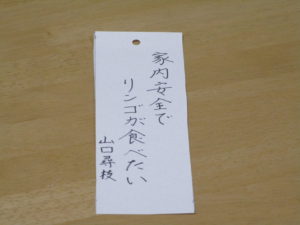 家内安全で
リンゴが食べたい
山口尋枝